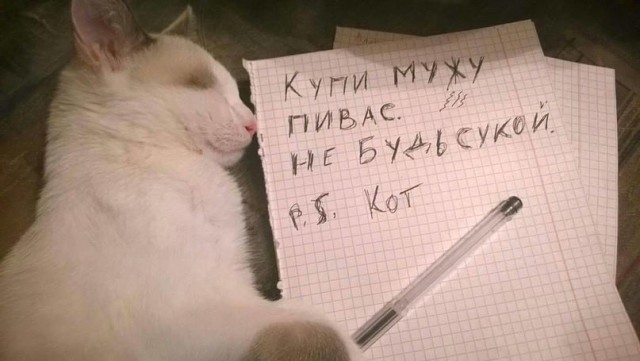 КУПИ МУЖУ
ПИВАС.
НЕ БУДЬ СУКОЙ.
P.S. КОТ